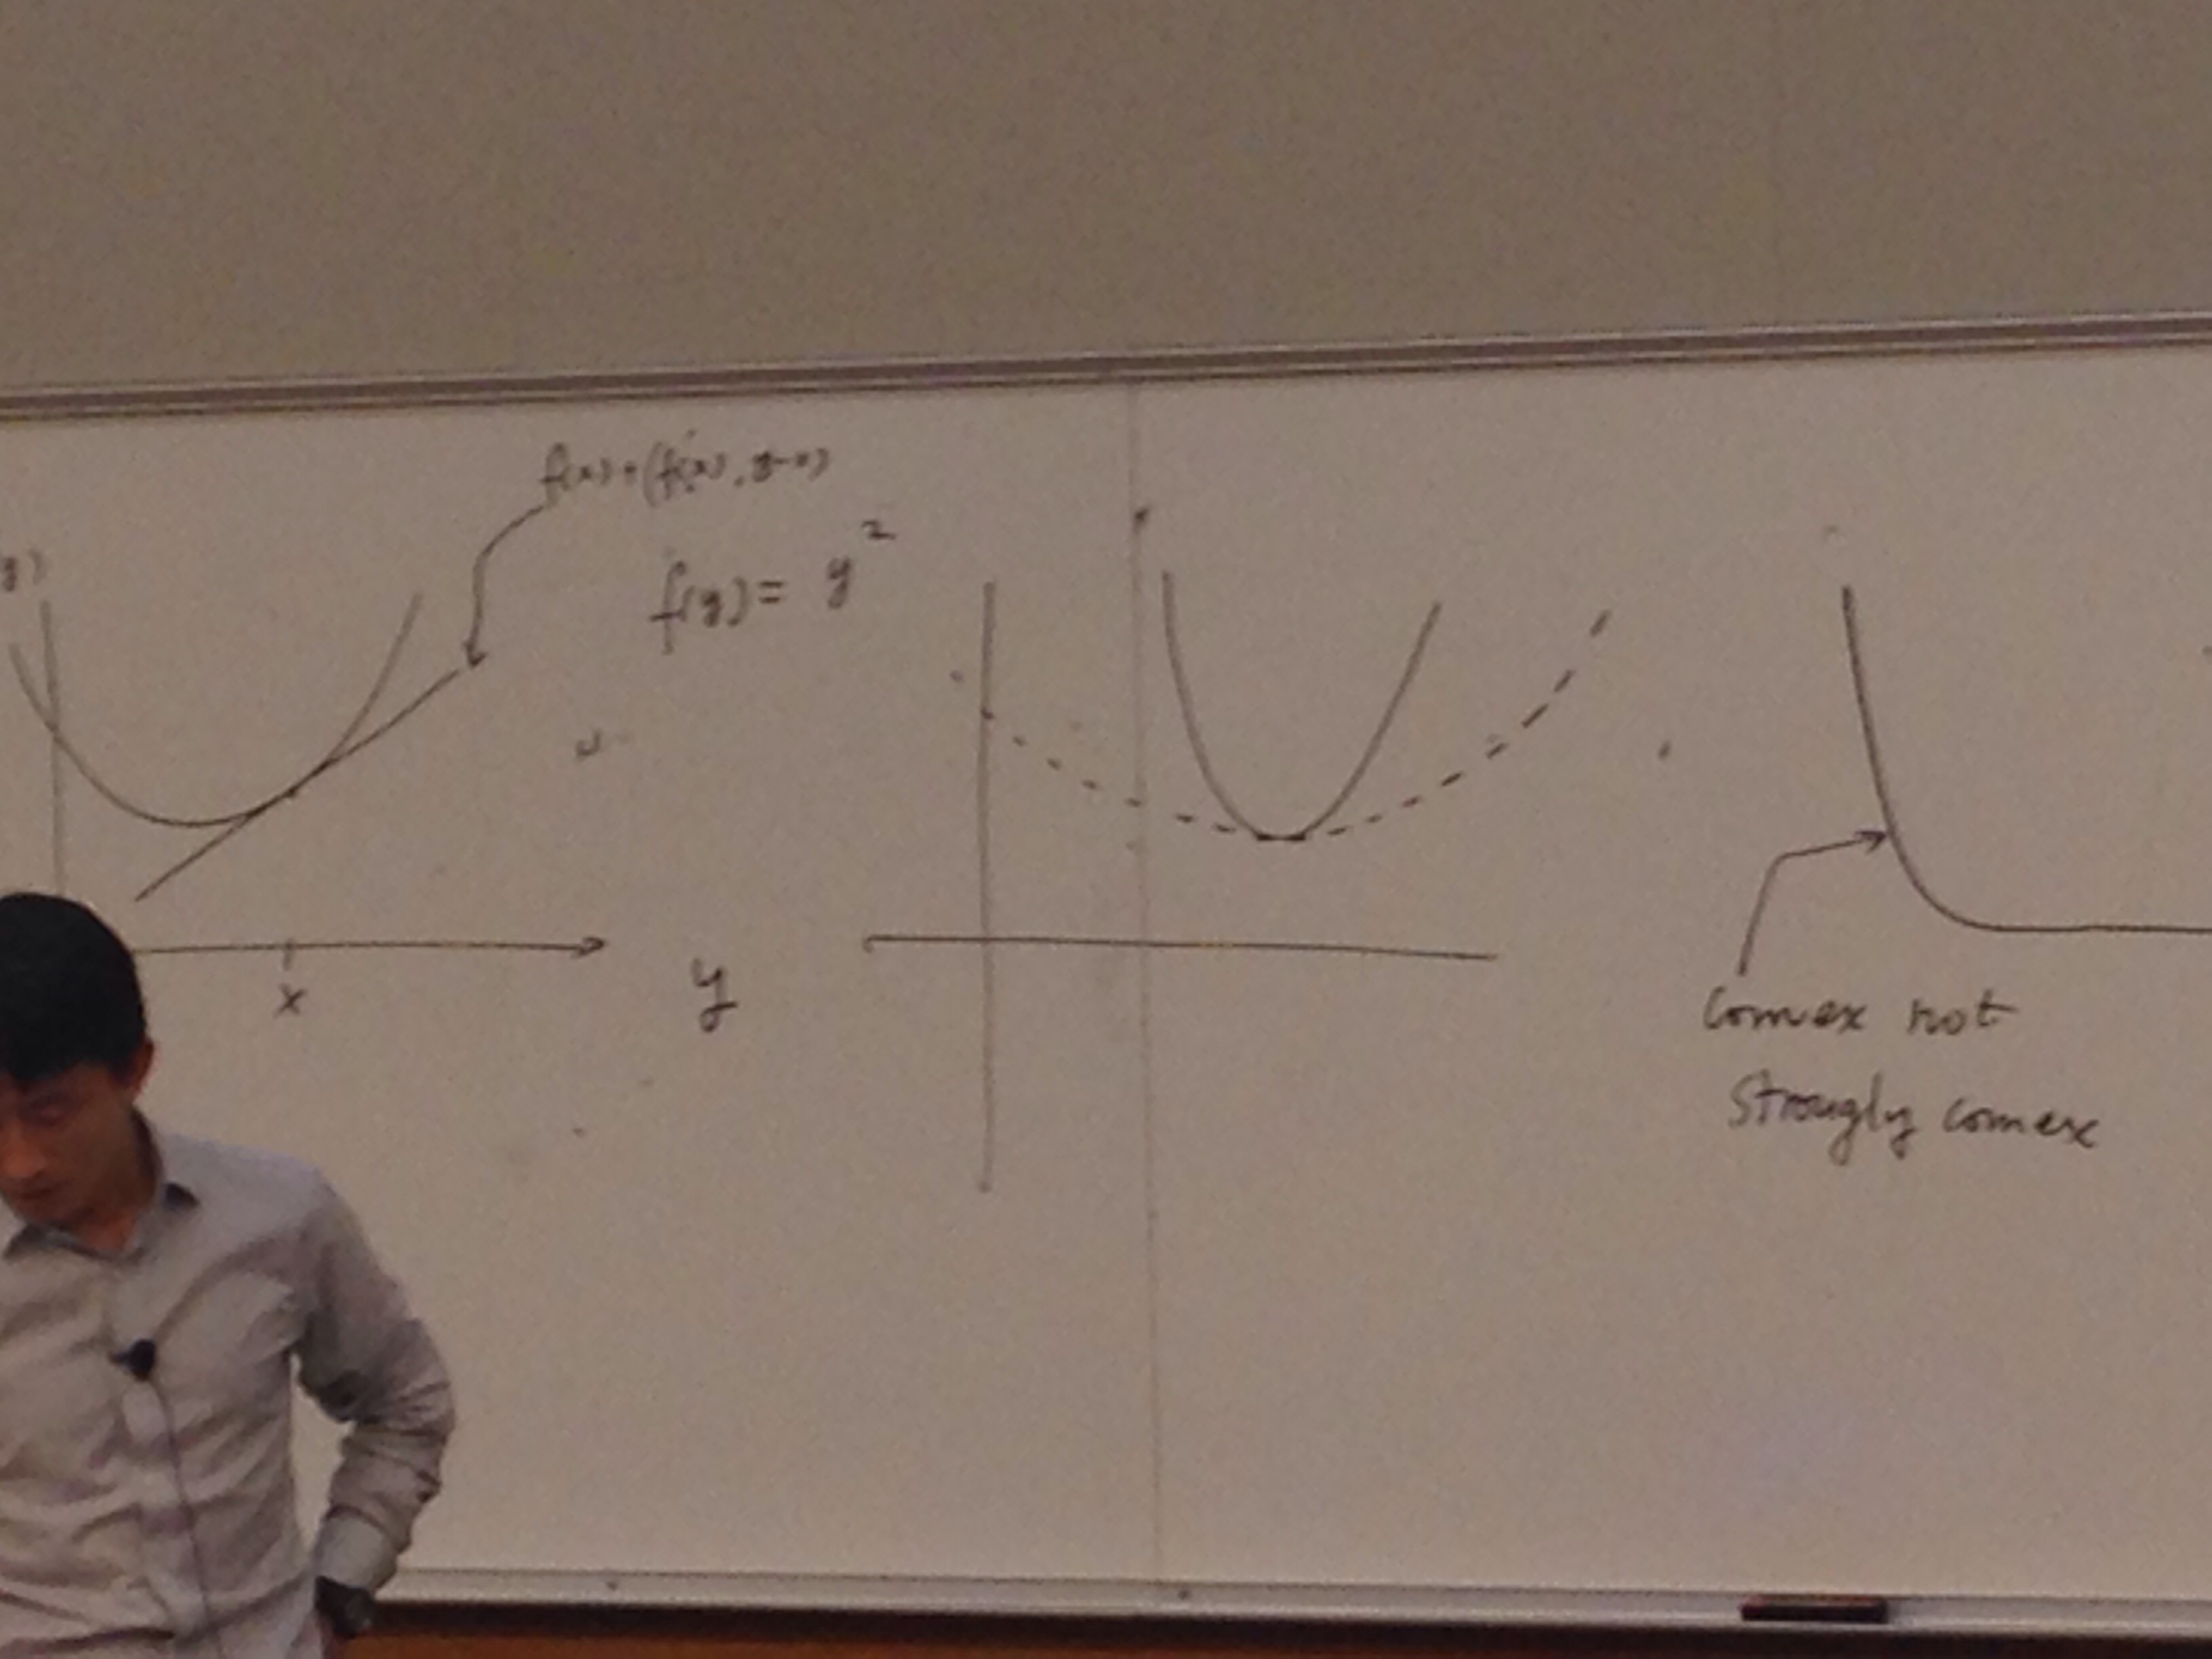 f(x)+(f'(x), y-x)
y)
f(y)= y²
x
y
Convex not
Strongly convex